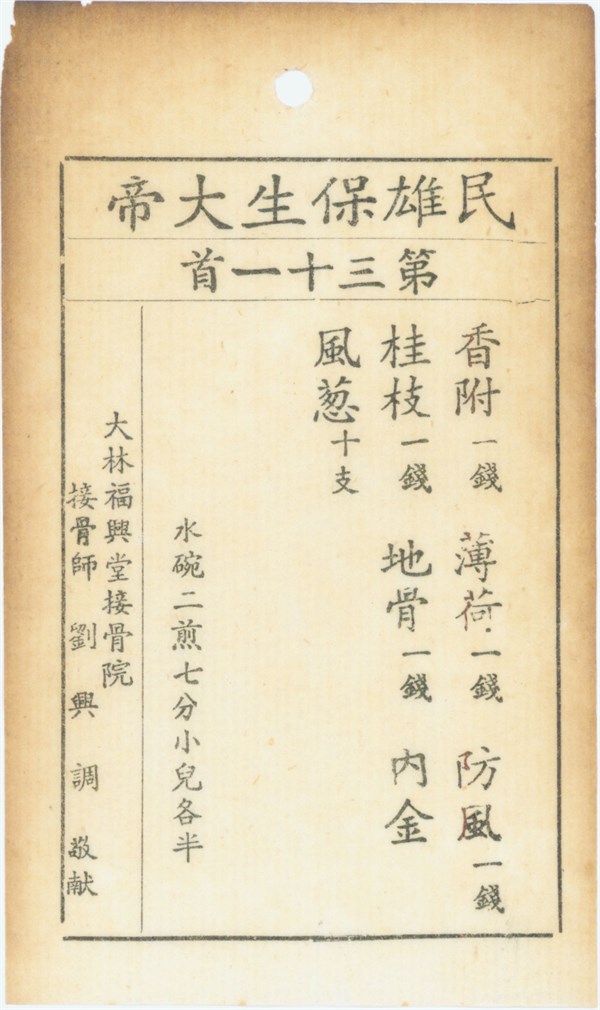 民雄保生大帝
第三十一首
香附一錢 薄荷一錢 防風一錢
桂枝一錢 地骨一錢 內金
風葱十支
水碗二煎七分小兒各半
大林福興堂接骨院
接骨師 劉興調 敬献